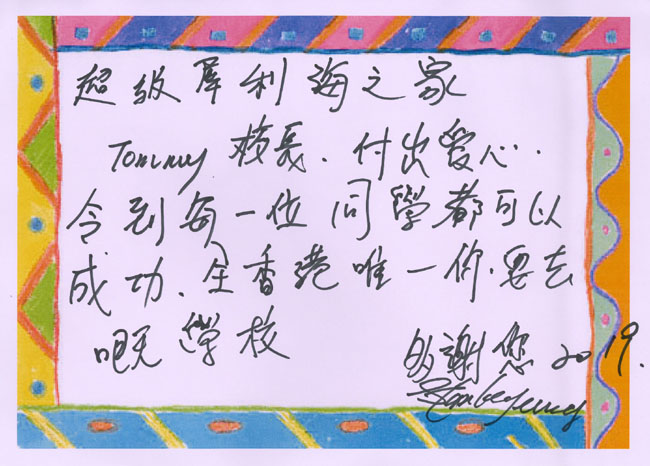 超級犀利海之家
Tommy 校長．付出愛心．
令到每一位同學都可以
成功、全香港唯一你．要去
嘅學校
多謝您 2019.